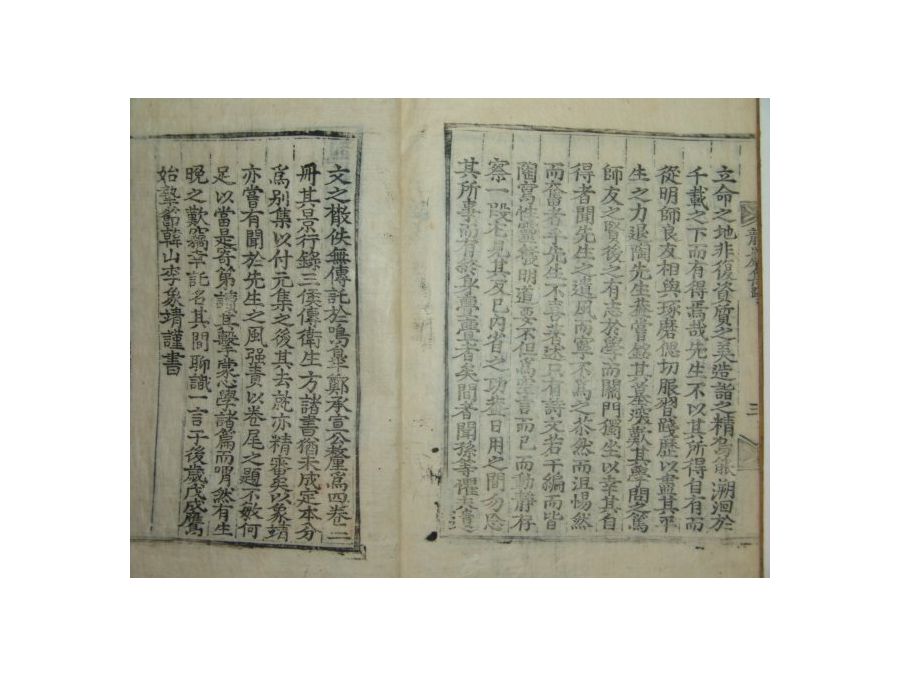 立命之地非復資質之美造詣之精烏能溯洄於
千載之下而有得焉哉先生不以其所得自有而
從明師良友相與琢磨偲切服習踐歷以盡其平
生之力退陶先生蓋嘗銘其墓深歎其學問之篤
師友之賢後之有志於學而閉門獨坐以幸其自
得者聞先生之遺風而寧不爲之茶然而沮惕然
而奮者乎先生不喜著述只有詩文若干編而皆
陶寫性靈發明道要不但爲空言而已而動靜存
察一段尤見其反己內省之功蓋日用之間勿忘
其所事而有終身亹亹者矣間者聞孫等懼夫遺
文之散佚無傳託於鳴皐鄭承宣公釐爲四卷二
冊其景行錄三侯傳衛生方諸書猶未成定本分
爲別集以付元集之後其去就亦精審矣以象靖
亦嘗有聞於先生之風强責以卷尾之題不敏何
足以當是寄第讀其擊蒙心學諸篇而喟然有生
晩之歎竊幸託名其間聊識一言于後歲戊戌鴈鳥
始摯節韓山李象靖謹書
三